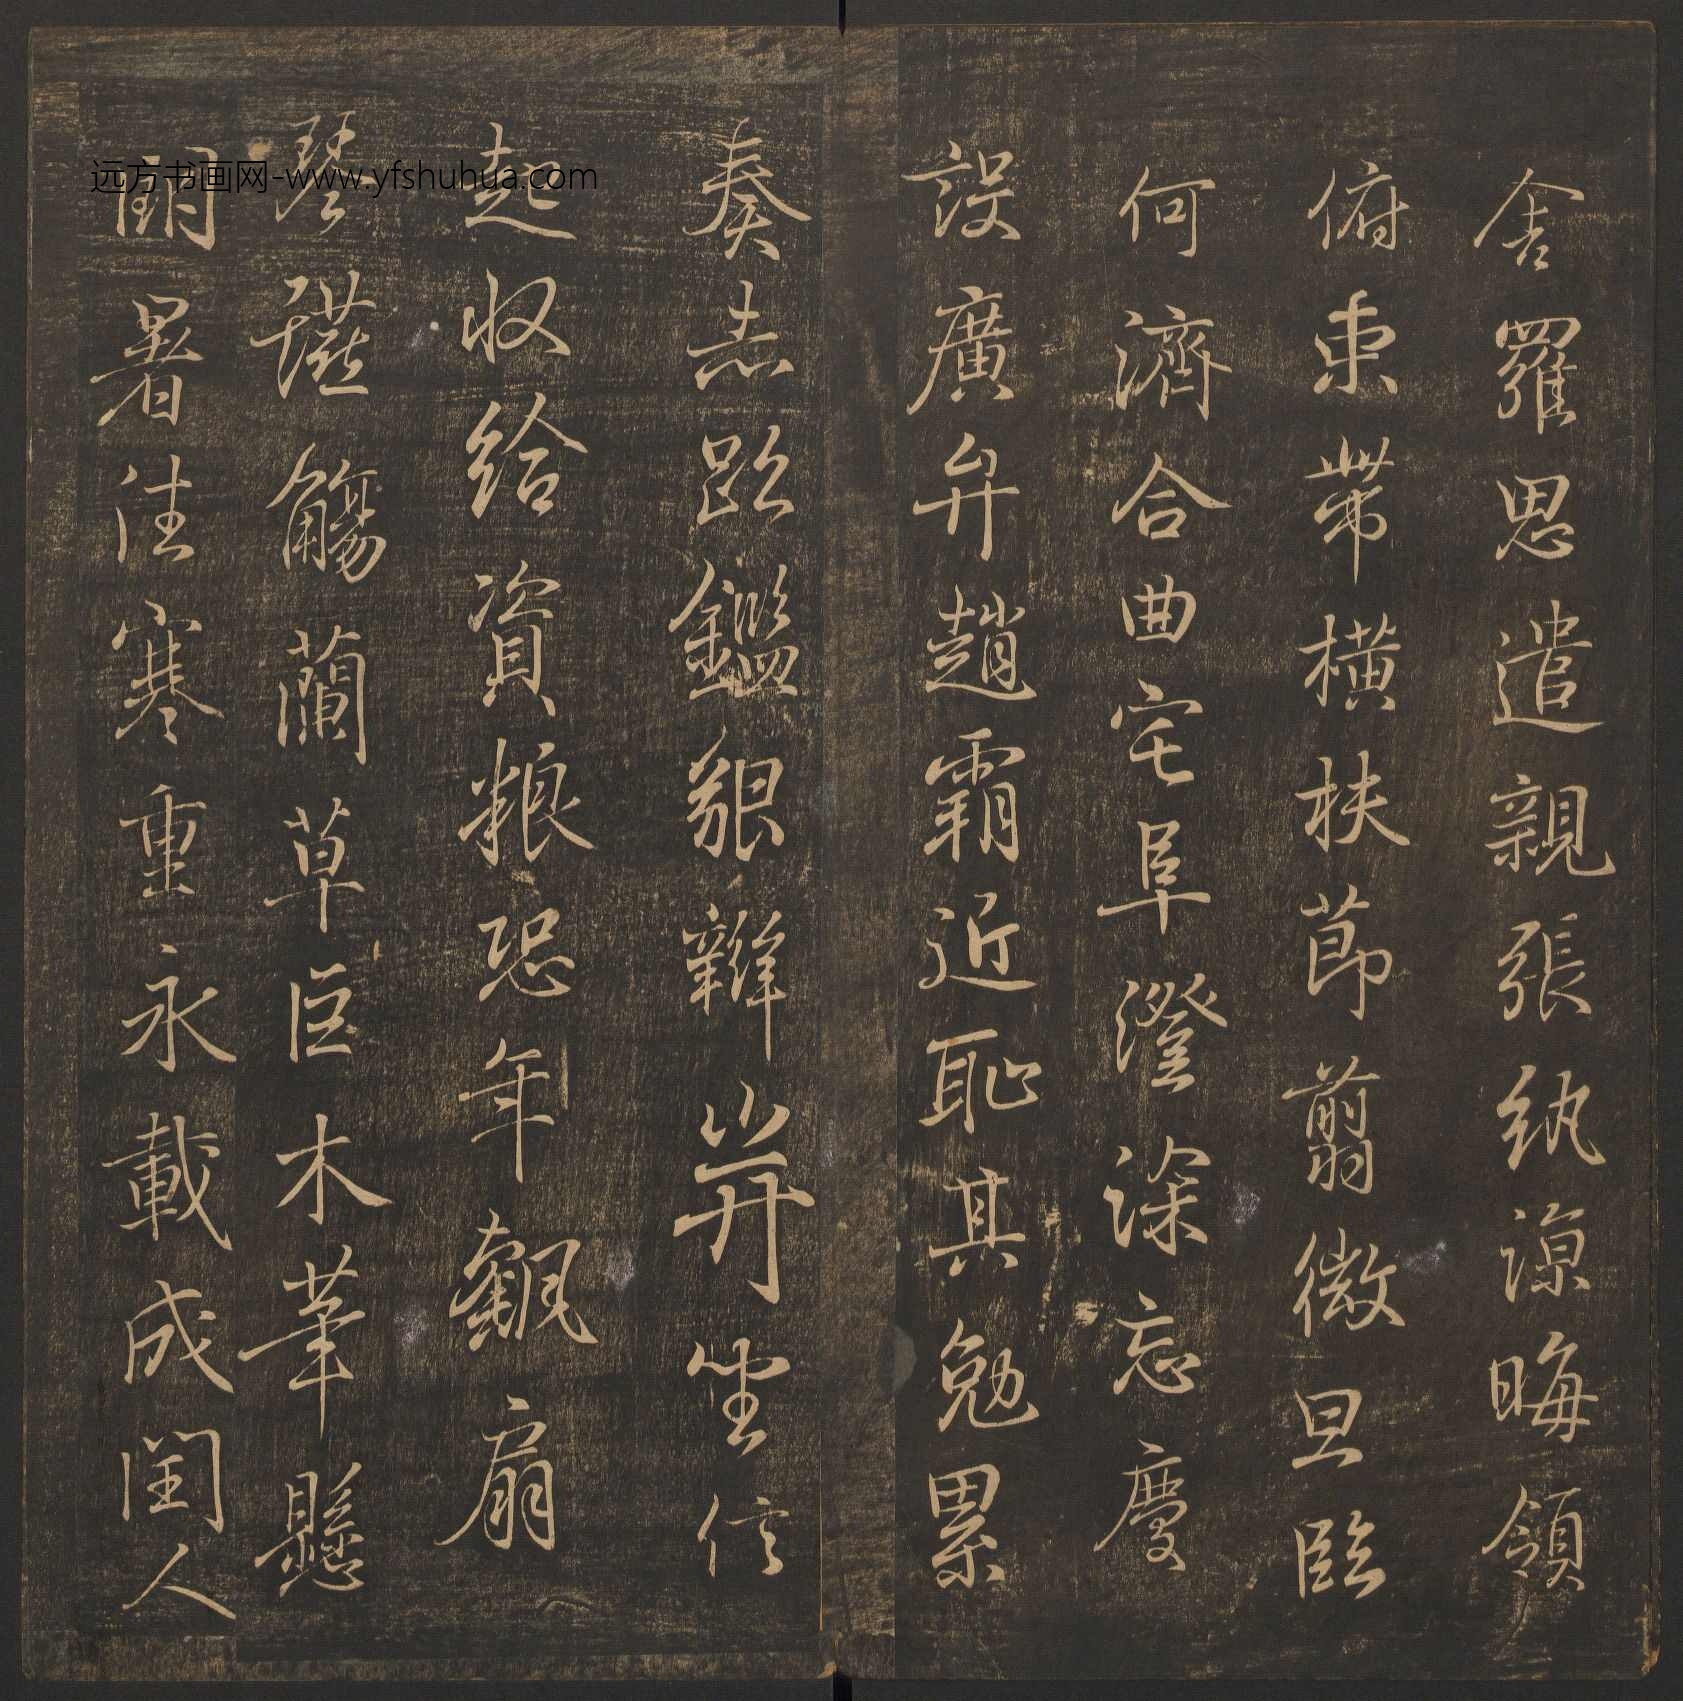 远方书画网-www.yfshuhua.com
舍羅思遣親張紈諒晦領
俯束帶橫扶節翦微旦臨
何濟合曲宅阜澄深忘慶
設廣弁趙霸近恥其勉累
奏鑑貌辨坐信
起收給資粮恐年觀扇
琴觴蘭草巨木華懸
暑往寒重永載成閏人